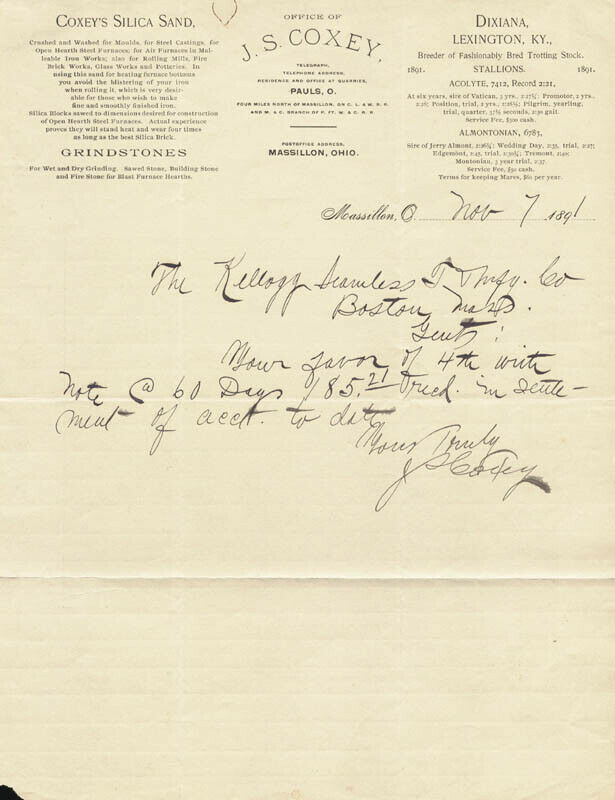 COXEY'S SILICA SAND,
Crushed and Washed for Moulds, for Steel Castings, for
Open Hearth Steel Furnaces; for Air Furnaces in Mal-
leable Iron Works; also for Rolling Mills, Fire
Brick Works, Glass Works and Potteries. In
using this sand for heating furnace bottoms
you avoid the blistering of your iron
when rolling it, which is very desir-
able for those who wish to make
fine and smoothly finished iron.
Silica Blocks sawed to dimensions desired for construction
of Open Hearth Steel Furnaces. Actual experience
proves they will stand heat and wear four times
as long as the best Silica Brick.
GRINDSTONES
For Wet and Dry Grinding. Sawed Stone, Building Stone
and Fire Stone for Blast Furnace Hearths.
OFFICE OF
J. S. COXEY,
TELEGRAPH,
TELEPHONE ADDRESS,
RESIDENCE AND OFFICE AT QUARRIES,
PAULS, O.
FOUR MILES NORTH OF MASSILLON, ON C. L. & W. R. R.
AND M. & C. BRANCH OF P. FT. W. & C. R. R.
POSTOFFICE ADDRESS,
MASSILLON, OHIO.
DIXIANA,
LEXINGTON, KY.,
Breeder of Fashionably Bred Trotting Stock.
1891. STALLIONS. 1891.
ACOLYTE, 7412, Record 2:21,
At six years, sire of Vatican, 3 yrs., Promotor, 2 yrs.,
Position, trial, 2 yrs., Pilgrim, yearling,
trial, quarter, 37½ seconds, 2:30 gait.
Service Fee, $300 cash.
ALMONTONIAN, 6783,
Sire of Jerry Almont, Wedding Day, 2:35, trial, 2:27;
Edgemont, trial, Tremont,
Montonian, 3 year trial, 2:37.
Service Fee, $50 cash.
Terms for keeping Mares, $60 per year.
Massillon, O. Nov 7 1891
The Kellogg Seamless T Mfg. Co
Boston Mass.
Gents:
Your favor of 4th with
Note @ 60 Days 185.21 recd. in settle-
ment of acct. to date
Yours Truly
J S Coxey